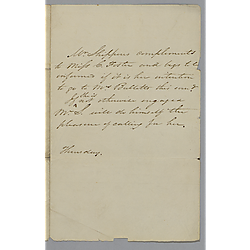 Mr Shippens compliments
to Miss E. Foster and begs to be
informed if it is her intention
to go to Mrs this eve'g
If not otherwise engaged
Mr S. will do himself the
pleasure of calling for her.
Thursday.